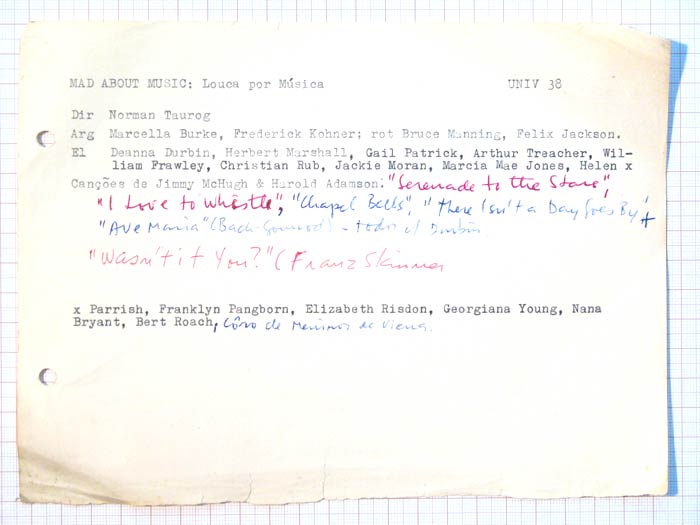 MAD ABOUT MUSIC: Louca por Música UNIV 38
Dir Norman Taurog
Arg Marcella Burke, Frederick Kohner; rot Bruce Manning, Felix Jackson.
El Deanna Durbin, Herbert Marshall, Gail Patrick, Arthur Treacher, Wil-
liam Frawley, Christian Rub, Jackie Moran, Marcia Mae Jones, Helen x
Canções de Jimmy McHugh & Harold Adamson: "Serenade to the Stars",
"I Love to Whistle", "Chapel Bells", "There Isn't a Day Goes By", +
"Ave Maria" (Bach-Gounod) - todos c/ Durbin.
"Wasn't it You?" (Franz Skinner
x Parrish, Franklyn Pangborn, Elizabeth Risdon, Georgiana Young, Nana
Bryant, Bert Roach, Côro de Meninos de Viena.